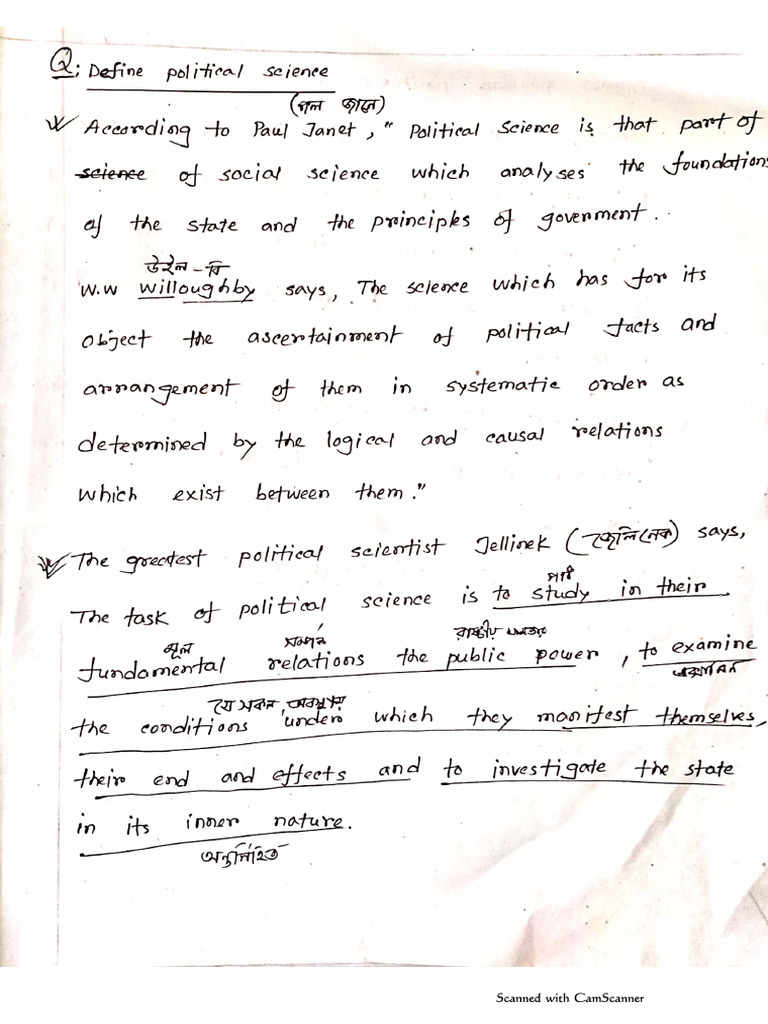 Q: Define political science
(পল জানে)
According to Paul Janet, " Political Science is that part of
science of social science which analyses the foundations
of the state and the principles of goverment.
উইল-বি
W.W willoughby says, The science which has for its
object the ascertainment of political facts and
arrangement of them in systematic order as
determined by the logical and causal relations
which exist between them."
The greatest political scientist Jellinek (জেলিনেক) says,
The task of political science is to study in their
মূল সম্পর্ক রাষ্ট্রীয়
fundamental relations the public power, to examine
যে সকল
the conditions under which they manifest themselves,
their end and effects and to investigate the state
in its inner nature.
Scanned with CamScanner